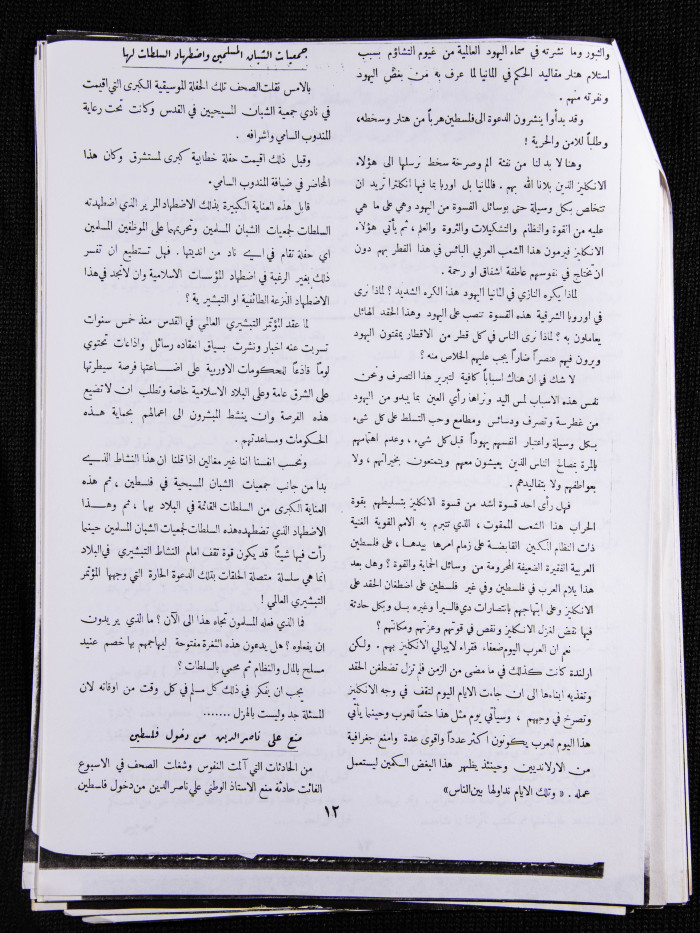 والثبور وما نشرته في سماء اليهود العالمية من غيوم التشاؤم بسبب
استلام هتلر مقاليد الحكم في المانيا لما عرف به من بغض اليهود
ونفرته منهم .
وقد بدأوا ينشرون الدعوة الى فلسطين هرباً من هتلر وسخطه،
وطلباً للامن والحرية !
وهنا لا بد لنا من نفثة الم وصرخة سخط نرسلها الى هؤلاء
الانكليز الذين بلانا الله بهم . فالمانيا بل اوربا بما فيها انكلترا تريد ان
تتخلص بكل وسيلة حتى بوسائل القسوة من اليهود وهي على ما هي
عليه من القوة والنظام والتشكيلات والثروة والعلم ، ثم يأتي هؤلاء
الانكليز فيرمون هذا الشعب العربي البائس في هذا القطر بهم دون
ان تختلج في نفوسهم عاطفة اشفاق او رحمة .
لماذا يكره النازي في المانيا اليهود هذا الكره الشديد ؟ لماذا نرى
في اوروبا الشرقية هذه القسوة تنصب على اليهود وهذا الحقد الهائل
يعاملون به ؟ لماذا نرى الناس في كل قطر من الاقطار يمقتون اليهود
ويرون فيهم عنصراً ضاراً يجب عليهم الخلاص منه ؟
لا شك في ان هناك اسباباً كافية لتبرير هذا التصرف ونحن
نلمس هذه الاسباب لمس اليد ونراها رأي العين بما يبدو من اليهود
من غطرسة وتصرف ودسائس ومطامع وحب التسلط على كل شيء
بكل وسيلة واعتبار انفسهم يهوداً قبل كل شيء ، وعدم اهتمامهم
بالمرة بمصالح الناس الذين يعيشون معهم ويتمتعون بخيراتهم ، ولا
بعواطفهم ولا بتقاليدهم .
فهل رأى احد قسوة اشد من قسوة الانكليز بتسليطهم بقوة
الحراب هذا الشعب الممقوت ، الذي تتبرم به الامم القوية الغنية
ذات النظام المكين القابضة على زمام امرها بيدها ، على فلسطين
العربية الفقيرة الضعيفة المحرومة من وسائل الحماية والقوة ؟ وهل بعد
هذا يلام العرب في فلسطين وفي غير فلسطين على اضطغان الحقد على
الانكليز وعلى ابتهاجهم بانتصارات دي فاليرا وغيره بل وبكل حادثة
فيها نقض لغزل الانكليز ونقص في قوتهم وعزتهم ومكانتهم ؟
نعم ان العرب اليوم ضعفاء فقراء لا يبالي الانكليز بهم . ولكن
ارلندة كانت كذلك في ما مضى من الزمن فلم تزل تضطغن الحقد
وتغذيه ابناءها الى ان جاءت الايام اليوم لتقف في وجه الانكليز
وتصرخ في وجههم ، وسيأتي يوم مثل هذا حتماً للعرب وحينما يأتي
هذا اليوم للعرب يكونون اكثر عدداً واقوى عدة وامنع جغرافية
من الارلنديين وحينئذ يظهر هذا البغض السكين ليستعمل
عمله . « وتلك الايام نداولها بين الناس »
جمعيات الشبان المسلمين واضطهاد السلطات لها
بالامس نقلت الصحف تلك الحفلة الموسيقية الكبرى التي اقيمت
في نادي جمعية الشبان المسيحيين في القدس وكانت تحت رعاية
المندوب السامي واشرافه .
وقبل ذلك اقيمت حفلة خطابية كبرى لمستشرق وكان هذا
المحاضر في ضيافة المندوب السامي .
قابل هذه العناية الكبيرة بذلك الاضطهاد المرير الذي اضطهدته
السلطات لجمعيات الشبان المسلمين وتحريمها على الموظفين المسلمين
اي حفلة تقام في اي ناد من انديتها . فهل تستطيع ان تفسر
ذلك بغير الرغبة في اضطهاد المؤسسات الاسلامية وان لا تجد في هذا
الاضطهاد النزعة الطائفية او التبشيرية ؟
لما عقد المؤتمر التبشيري العالمي في القدس منذ خمس سنوات
تسربت عنه اخبار ونشرت بسياق انعقاده رسائل واذاعات تحتوي
لوماً قاذعاً للحكومات الاوربية على اضاعتها فرصة سيطرتها
على الشرق عامة وعلى البلاد الاسلامية خاصة وتطلب ان لا تضيع
هذه الفرصة وان ينشط المبشرون الى اعمالهم بحماية هذه
الحكومات ومساعدتهم .
ونحسب انفسنا اننا غير مغالين اذا قلنا ان هذا النشاط الذي
بدا من جانب جمعيات الشبان المسيحية في فلسطين ، ثم هذه
العناية الكبرى من السلطات القائمة في البلاد بها ، ثم وهذا
الاضطهاد الذي تضطهده هذه السلطات لجمعيات الشبان المسلمين حينما
رأت فيها شيئاً قد يكون قوة تقف امام النشاط التبشيري في البلاد
انما هي سلسلة متصلة الحلقات بتلك الدعوة الحارة التي وجهها المؤتمر
التبشيري العالمي !
فما الذي فعله المسلمون تجاه هذا الى الآن ؟ ما الذي يريدون
ان يفعلوه ؟ هل يدعون هذه الثغرة مفتوحة ليهاجمهم بها خصم عنيد
مسلح بالمال والنظام ثم محمي بالسلطات ؟
يجب ان يفكر في ذلك كل مسلم في كل وقت من اوقاته لان
المسئلة جد وليست بالهزل .......
منع علي ناصر الدين من دخول فلسطين
من الحادثات التي آلمت النفوس وشغلت الصحف في الاسبوع
الفائت حادثة منع الاستاذ الوطني علي ناصر الدين من دخول فلسطين
١٢